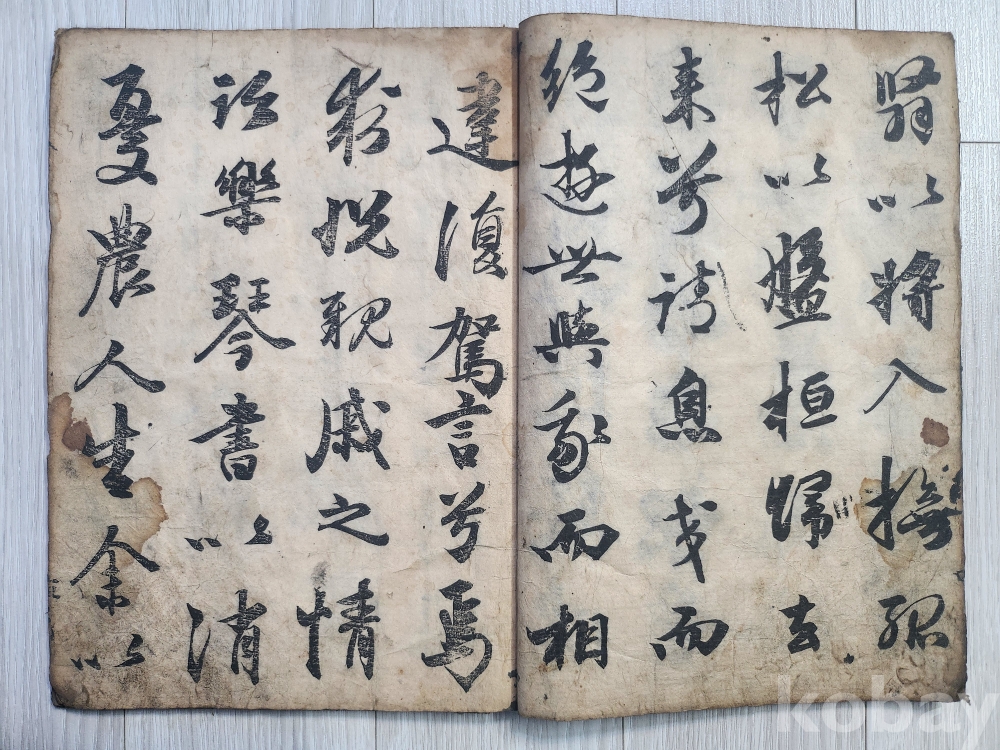 翳以將入撫孤
松以盤桓歸去
来兮請息交而
絶遊世與我而相
違復駕言兮焉
求悦親戚之情
話樂琴書以消
憂農人告余以
kobay